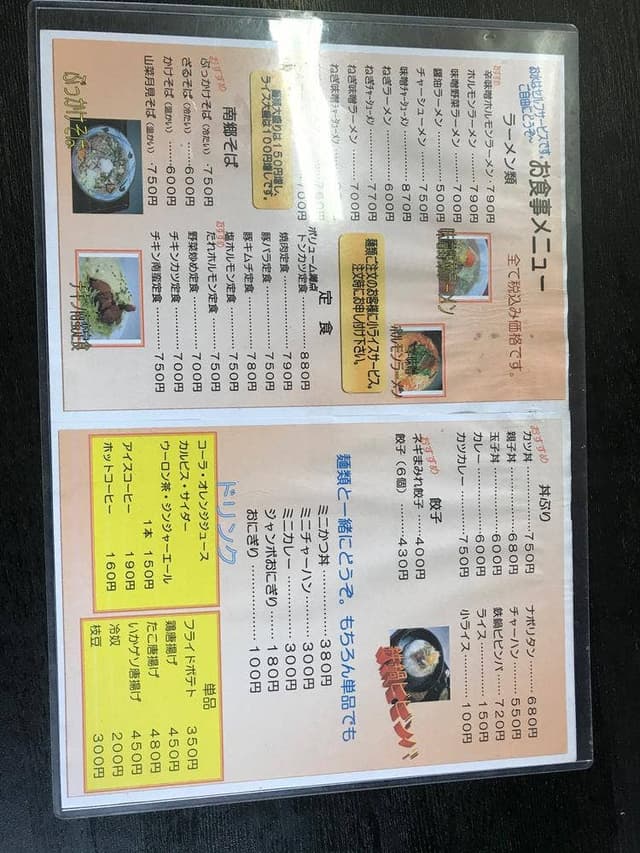 お水はセルフサービスです。
ご自由にどうぞ。
お食事メニュー
全て税込み価格です。
ラーメン類
おすすめ
辛味噌ホルモンラーメン・790円
ホルモンラーメン……790円
味噌野菜ラーメン……700円
醤油ラーメン…………500円
チャーシューメン……750円
味噌ﾁｬｰｼｭｰﾒﾝ………870円
ねぎラーメン…………600円
ねぎﾁｬｰｼｭｰﾒﾝ………770円
ねぎ味噌ラーメン……700円
麺類ご注文のお客様に小ライスサービス。
注文時にお申し付け下さい。
麺類大盛りは150円増し、
ライス大盛は100円増しです。
南郷そば
おすすめ
ぶっかけそば(冷たい)・750円
ざるそば(冷たい)……600円
かけそば(温かい)……600円
山菜月見そば(温かい)・750円
ぶっかけそば
定食
ボリューム満点
トンカツ定食…………880円
焼肉定食………………790円
豚バラ定食……………750円
豚キムチ定食…………780円
おすすめ
塩ホルモン定食………750円
たれホルモン定食……750円
野菜炒め定食…………700円
チキンカツ定食………700円
チキン南蛮定食………750円
チキン南蛮定食
丼ぶり
おすすめ
カツ丼…………750円
親子丼…………680円
玉子丼…………600円
カレー…………600円
カツカレー……750円
ナポリタン……680円
チャーハン……550円
鉄鍋ビビンバ…720円
ライス…………150円
小ライス………100円
餃子
おすすめ
ネギまみれ餃子・400円
餃子(6個)……430円
鉄鍋ビビンバ
麺類と一緒にどうぞ。もちろん単品でも
ミニかつ丼…………380円
ミニチャーハン……300円
ミニカレー…………300円
ジャンボおにぎり…180円
おにぎり……………100円
ドリンク
コーラ・オレンジジュース
カルピス・サイダー
ウーロン茶・ジンジャーエール
1本 150円
アイスコーヒー 190円
ホットコーヒー 160円
単品
フライドポテト 350円
鶏唐揚げ 450円
たこ唐揚げ 480円
いかゲソ唐揚げ 450円
冷奴 200円
枝豆 300円